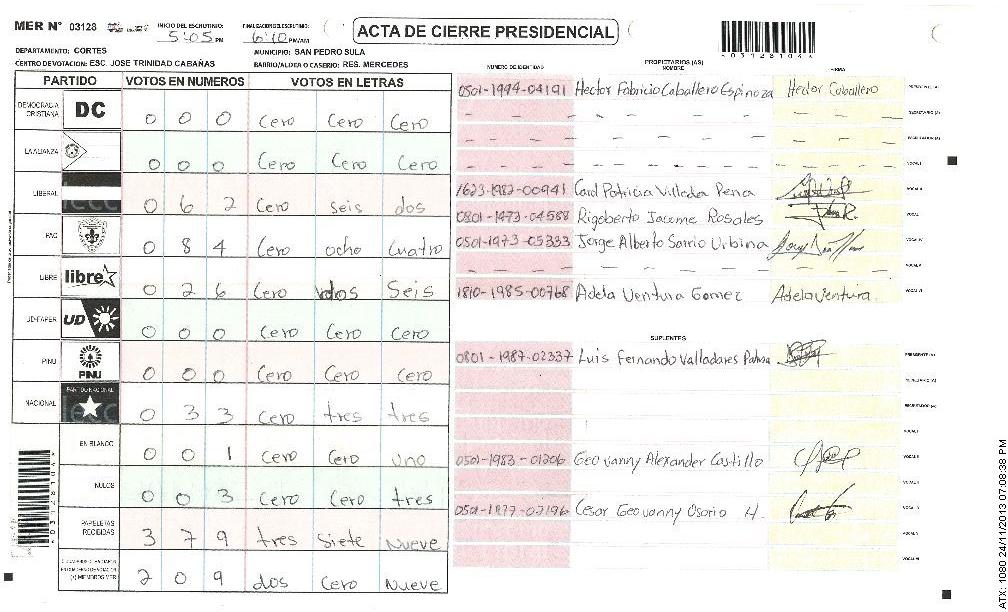 MER Nº 03128
INICIO DEL ESCRUTINIO: 5:05 PM
FINALIZACION ESCRUTINIO: 6:10 PM/AM
ACTA DE CIERRE PRESIDENCIAL
DEPARTAMENTO: CORTES
MUNICIPIO: SAN PEDRO SULA
CENTRO DE VOTACION: ESC. JOSE TRINIDAD CABAÑAS
BARRIO/ALDEA O CASERIO: RES. MERCEDES
PARTIDO VOTOS EN NUMEROS VOTOS EN LETRAS
DEMOCRACIA CRISTIANA DC 0 0 0 Cero Cero Cero
LA ALIANZA 0 0 0 Cero Cero Cero
LIBERAL 0 6 2 Cero seis dos
PAC 0 8 4 Cero ocho Cuatro
LIBRE libre 0 2 6 Cero dos Seis
UD-FAPER UD 0 0 0 Cero Cero Cero
PINU PINU 0 0 0 Cero Cero Cero
NACIONAL PARTIDO NACIONAL 0 3 3 Cero tres tres
EN BLANCO 0 0 1 Cero Cero uno
NULOS 0 0 3 Cero Cero tres
PAPELETAS RECIBIDAS 3 7 9 tres Siete Nueve
(+) MIEMBROS MER 2 0 9 dos Cero Nueve
NUMERO DE IDENTIDAD
PROPIETARIOS (AS)
NOMBRE
FIRMA
0501-1994-04191 Hector Fabricio Caballero Espinoza Hector Caballero
1623-1982-00941 Carol Patricia Villeda Pena
0801-1973-04588 Rigoberto Jacome Rosales
0501-1973-05333 Jorge Alberto Sorrio Urbina
1810-1985-00768 Adela Ventura Gomez Adela Ventura
SUPLENTES
0801-1987-02337 Luis Fernando Valladares Palma
0501-1983-01206 Geovanny Alexander Castillo
0501-1977-02196 Cesar Geovanny Osorio H.
ATX: 1080 24/11/2013 07:08:38 PM